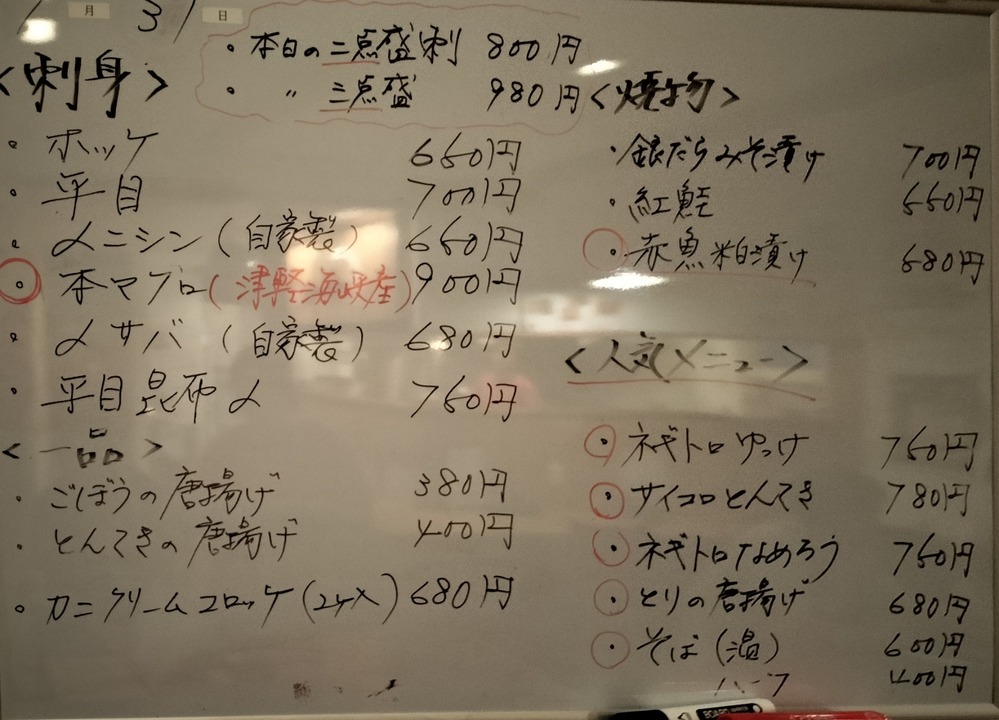 1 月 31 日
・本日の二点盛刺 800円
・〃 三点盛 980円
<刺身>
・ホッケ 650円
・平目 700円
・〆ニシン(自家製) 650円
・本マグロ(津軽海峡産) 900円
・〆サバ(自家製) 680円
・平目昆布〆 750円
<一品>
・ごぼうの唐揚げ 380円
・とんてきの唐揚げ 400円
・カニクリームコロッケ(2ケ入) 680円
<焼物>
・銀だらみそ漬け 700円
・紅鮭 550円
・赤魚粕漬け 680円
<人気メニュー>
・ネギトロゆっけ 750円
・サイコロとんてき 780円
・ネギトロなめろう 750円
・とりの唐揚げ 680円
・そば(温) 600円
ハーフ 400円
BOARD